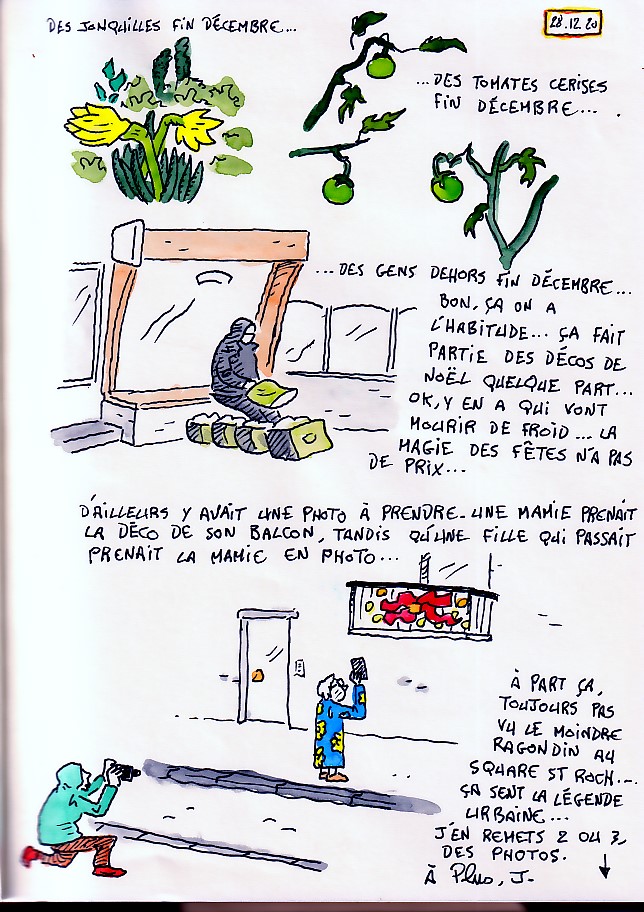 DES JONQUILLES FIN DÉCEMBRE...
28.12.20
...DES TOMATES CERISES
FIN DÉCEMBRE...
...DES GENS DEHORS FIN DÉCEMBRE...
BON, ÇA ON A
L'HABITUDE... ÇA FAIT
PARTIE DES DÉCOS DE
NOËL QUELQUE PART...
OK, Y EN A QUI VONT
MOURIR DE FROID... LA
MAGIE DES FÊTES N'A PAS
DE PRIX...
D'AILLEURS Y AVAIT UNE PHOTO À PRENDRE. UNE MAMIE PRENAIT
LA DÉCO DE SON BALCON, TANDIS QU'UNE FILLE QUI PASSAIT
PRENAIT LA MAMIE EN PHOTO...
À PART ÇA,
TOUJOURS PAS
VU LE MOINDRE
RAGONDIN AU
SQUARE ST ROCH...
ÇA SENT LA LÉGENDE
URBAINE...
J'EN REMETS 2 OU 3
DES PHOTOS.
À Plus, J-